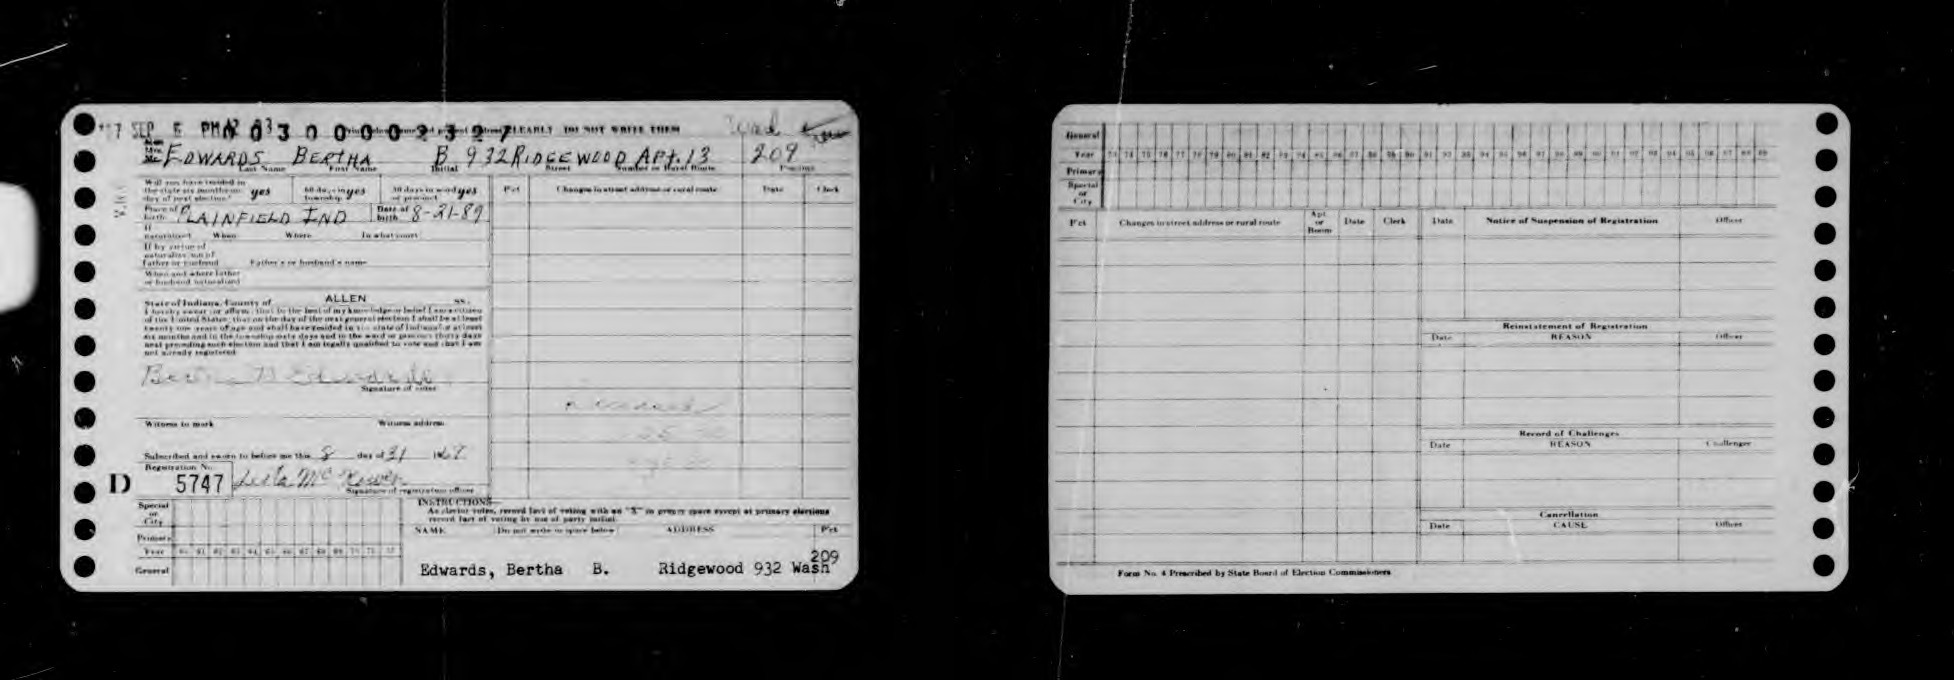 SEP PM 0300002327
CLEARLY DO NOT WRITE THEM Ward
Mrs. EDWARDS BERTHA B 932 RIDGEWOOD APT. 13 209
Last Name First Name Initial Street Number or Rural Route Precinct
Will you have resided in the state six months on day of next election? yes 60 days in township yes 30 days in ward or precinct yes
Place of birth PLAINFIELD IND Date of birth 8-21-89
If naturalized When Where In what court
If by virtue of naturalization of father or husband Father's or husband's name
When and where father or husband naturalized
State of Indiana, County of ALLEN SS.
I hereby swear (or affirm) that to the best of my knowledge or belief I am a citizen
of the United States; that on the day of the next general election I shall be at least
twenty-one years of age and shall have resided in the state of Indiana for at least
six months and in the township sixty days and in the ward or precinct thirty days
next preceding such election and that I am legally qualified to vote and that I am
not already registered
Bertha B Edwards
Signature of voter
Witness to mark Witness address
Subscribed and sworn to before me this 8 day of 31
Registration No.
D 5747
Signature of registration officer
Pct Changes in street address or rural route Date Clerk
Special or City
Primary
Year 60 61 62 63 64 65 66 67 68 69 70 71 72
General
INSTRUCTIONS
As elector votes, record fact of voting with an "X" in proper space except at primary elections
record fact of voting by use of party initial.
NAME (Do not write in space below) ADDRESS Pct
209
Edwards, Bertha B. Ridgewood 932 Wash
General
Year 73 74 75 76 77 78 79 80 81 82 83 84 85 86 87 88 89 90 91 92 93 94 95 96 97
Primary
Special or City
Pct Changes in street address or rural route Apt. or Room Date Clerk
Date Notice of Suspension of Registration Officer
Reinstatement of Registration
Date REASON Officer
Record of Challenges
Date REASON Challenger
Cancellation
Date CAUSE Officer
Form No. 4 Prescribed by State Board of Election Commissioners